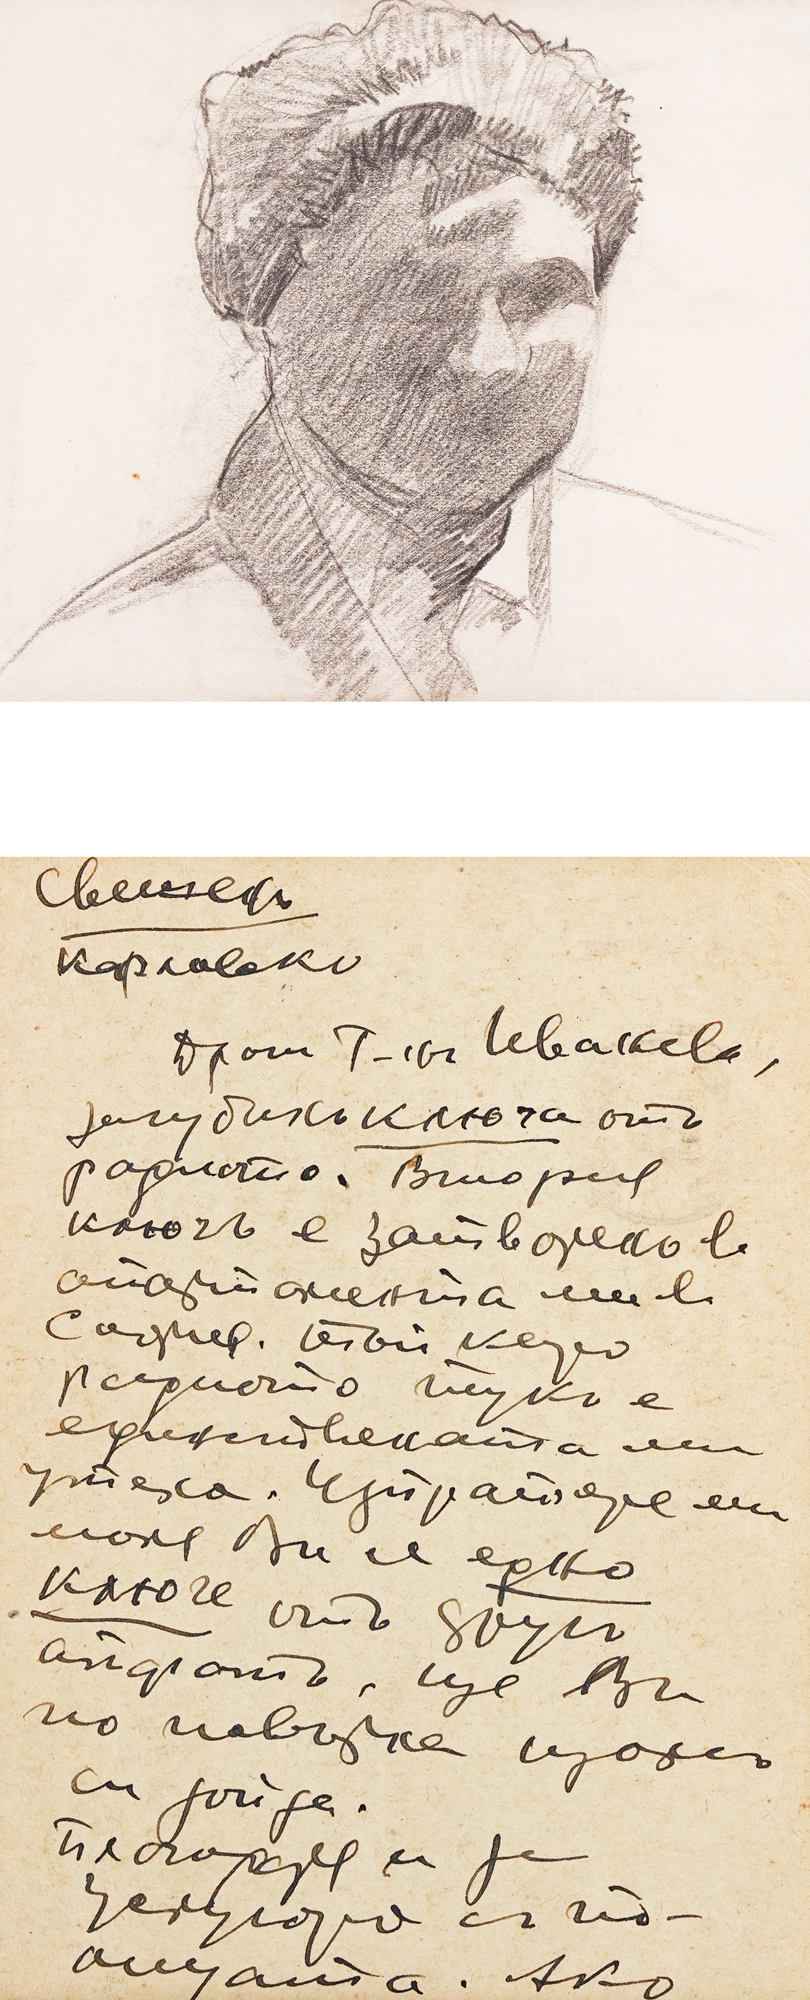 Свежень
Карловско
Драги Г-нъ Иванчевъ,
загубихъ ключа отъ
радиото. Втория
ключъ е затворенъ въ
апартамента ми въ
София. Тъй като
радиото тукъ е
единствената ми
утеха. Изпратете ми
моля Ви се едно
ключе отъ другъ
апаратъ, ще Ви
го повърна щомъ
си дойда.
и за
са по-
щата. Ако